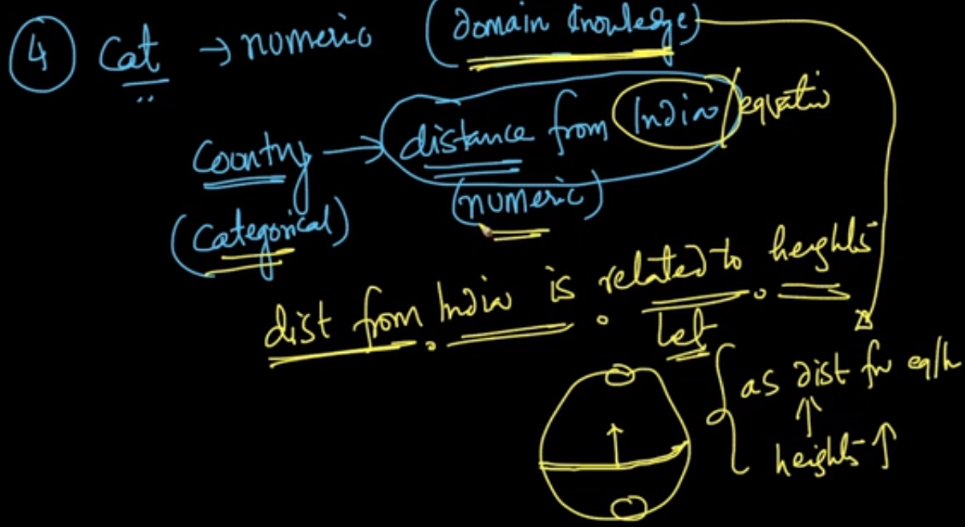 ④ Cat → numeric (domain knowledge)
Country → distance from India/equatio
(categorical) (numeric)
dist from India is related to heights
Let
as dist fr eq/h ↑
heights ↑